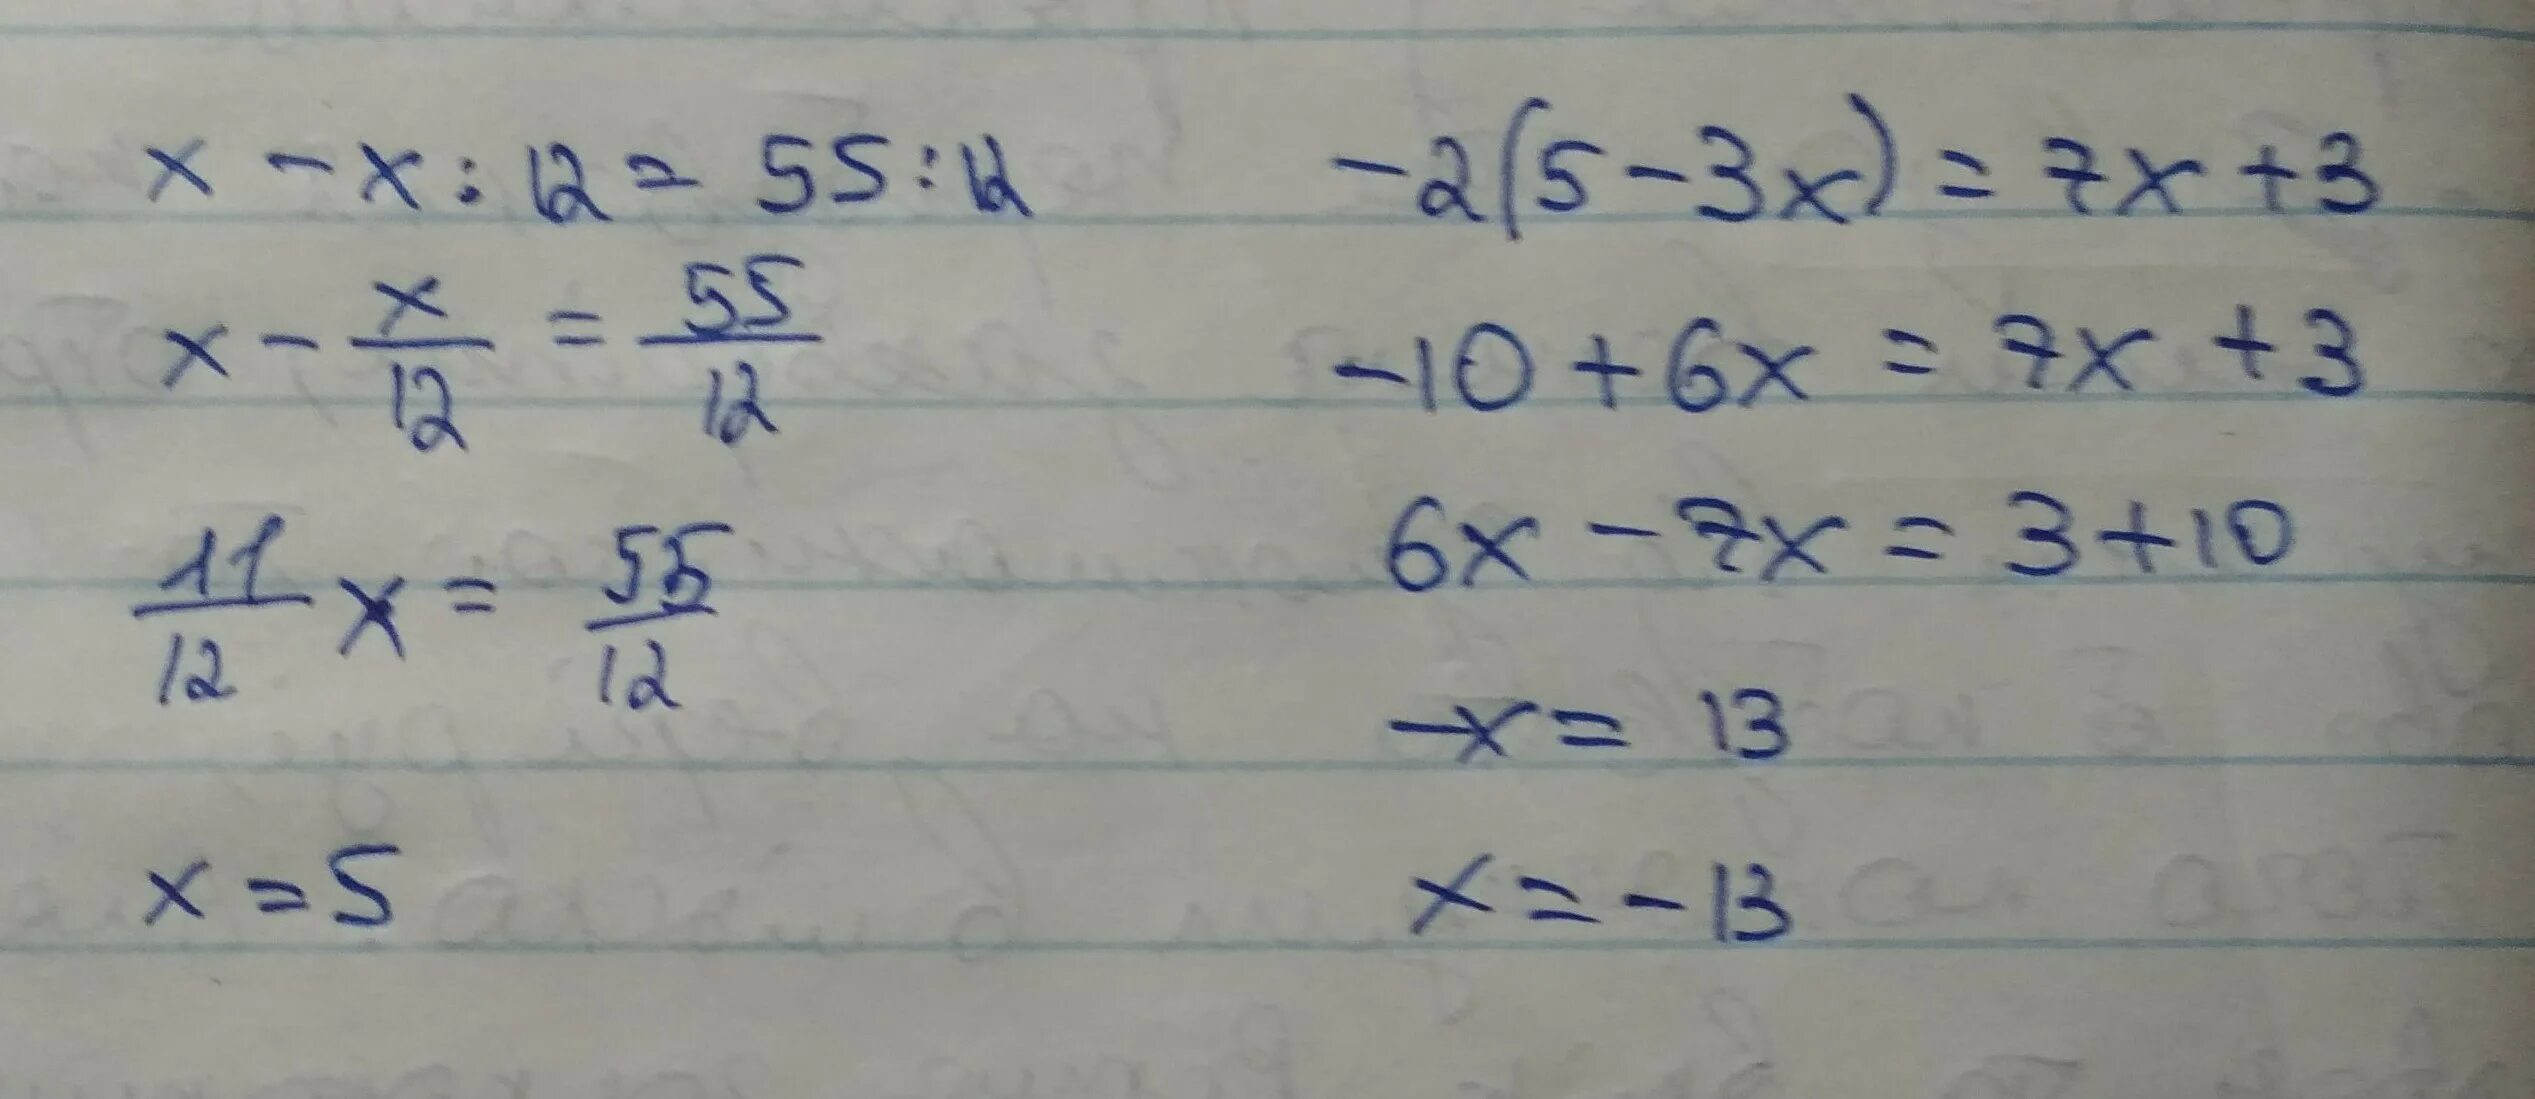 x - x : 12 = 55 : 12
x - x/12 = 55/12
11/12 x = 55/12
x = 5
-2(5 - 3x) = 7x + 3
-10 + 6x = 7x + 3
6x - 7x = 3 + 10
-x = 13
x = -13